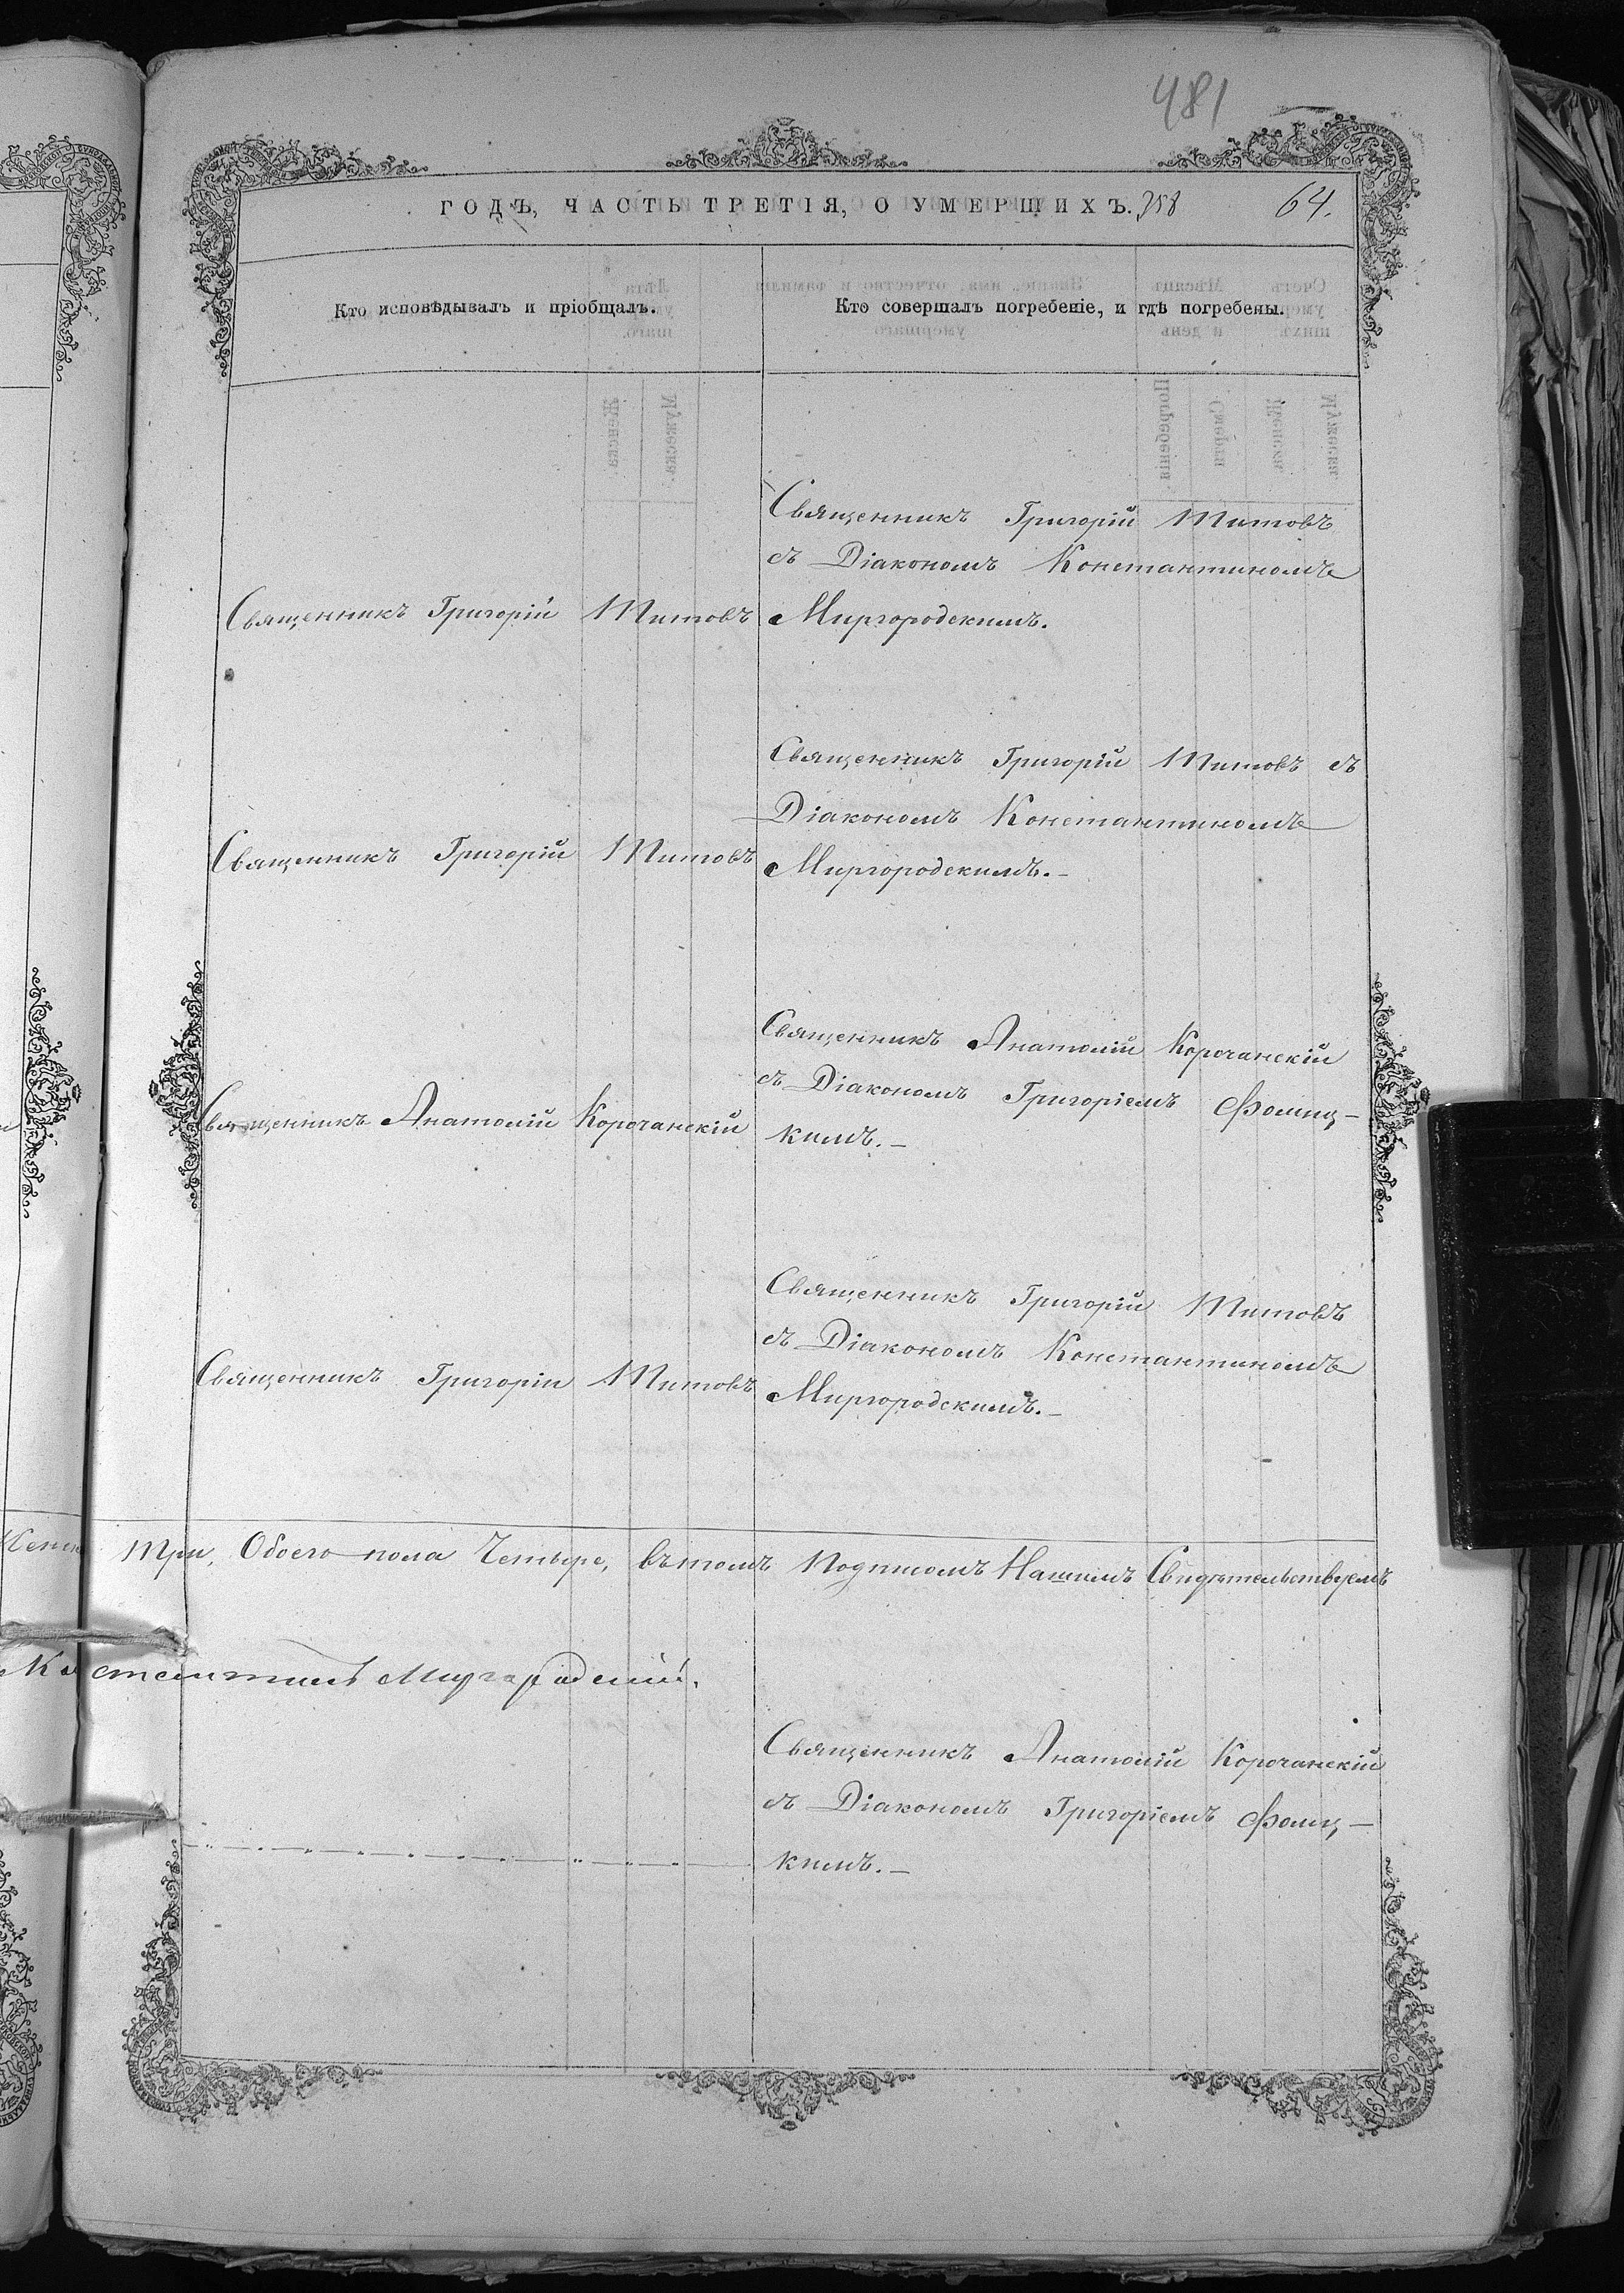 481
ГОДЪ, ЧАСТЬ ТРЕТІЯ, О УМЕРШИХЪ. 358 64.
Кто исповѣдывалъ и пріобщалъ.
Кто совершалъ погребеніе, и гдѣ погребены.
Священникъ Григорій Титовъ
Священникъ Григорій Титовъ
съ Діакономъ Константиномъ
Миргородскимъ.
Священникъ Григорій Титовъ
Священникъ Григорій Титовъ съ
Діакономъ Константиномъ
Миргородскимъ.–
Священникъ Анатолій Корочанскій
Священникъ Анатолій Корочанскій
съ Діакономъ Григоріемъ Фомиц–
кимъ.–
Священникъ Григорій Титовъ
Священникъ Григорій Титовъ
съ Діакономъ Константиномъ
Миргородскимъ.–
Три, Обоего пола Четыре, въ томъ Подписомъ Нашимъ Свидѣтельствуемъ
Константинъ Миргородскій.
Священникъ Анатолій Корочанскій
съ Діакономъ Григоріемъ Фомиц–
кимъ.–